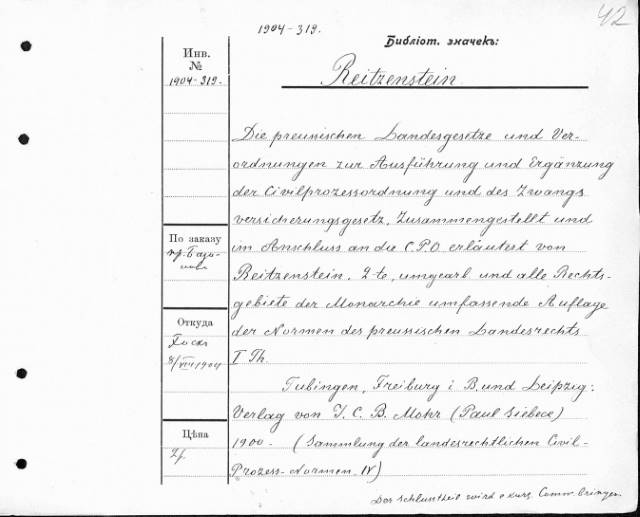 42
1904-319.
Библіот. значекъ:
Инв.
№
1904-319.
Reitzenstein
Die preussischen Landesgesetze und Ver-
ordnungen zur Ausführung und Ergänzung
der Civilprozessordnung und des Zwangs
versicherungsgesetz, Zusammengestellt und
im Anschluss an die C.P.O erläutert von
Reitzenstein. 2-te, umgearb und alle Rechts-
gebiete der Monarchie umfassende Auflage
der Normen des preussischen Landesrechts
I Th.
По заказу
пр.
Откуда
8/VII 1904
Tubingen, Freiburg i B. und Leipzig:
Verlag von J. C. B. Mohr (Paul Siebeck)
Цѣна
1900. (Sammlung der landesrechtlichen Civil-
Prozess-Normen. IV)
Der Schlusstheil wird e kurs. Comm. bringen.